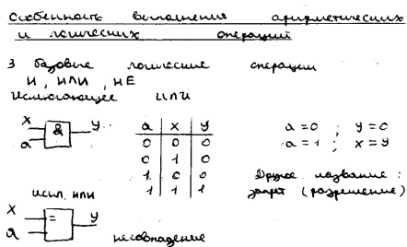 Особенность выполнения арифметических
и логических операций
3 базовые логические операции
И, ИЛИ, НЕ
Исключающее ИЛИ
X
a
&
y
a x y
0 0 0
0 1 0
1 0 0
1 1 1
a=0 ; y=0
a=1 ; x=y
Другое название:
запрет (разрешение)
искл. или
X
a
=
y
несовпадение